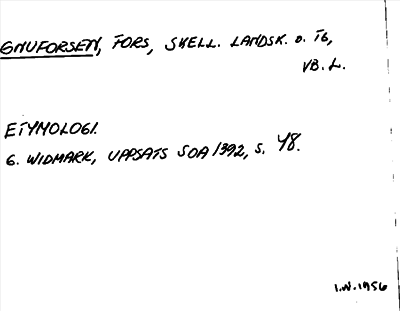 GNUFORSEN, FORS, SKELL. LANDSK. o. TG,
VB. L.
ETYMOLOGI.
G. WIDMARK, UPPSATS SOA 1392, S. 48.
I.W. 1956